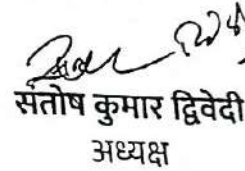 संतोष कुमार द्विवेदी
अध्यक्ष